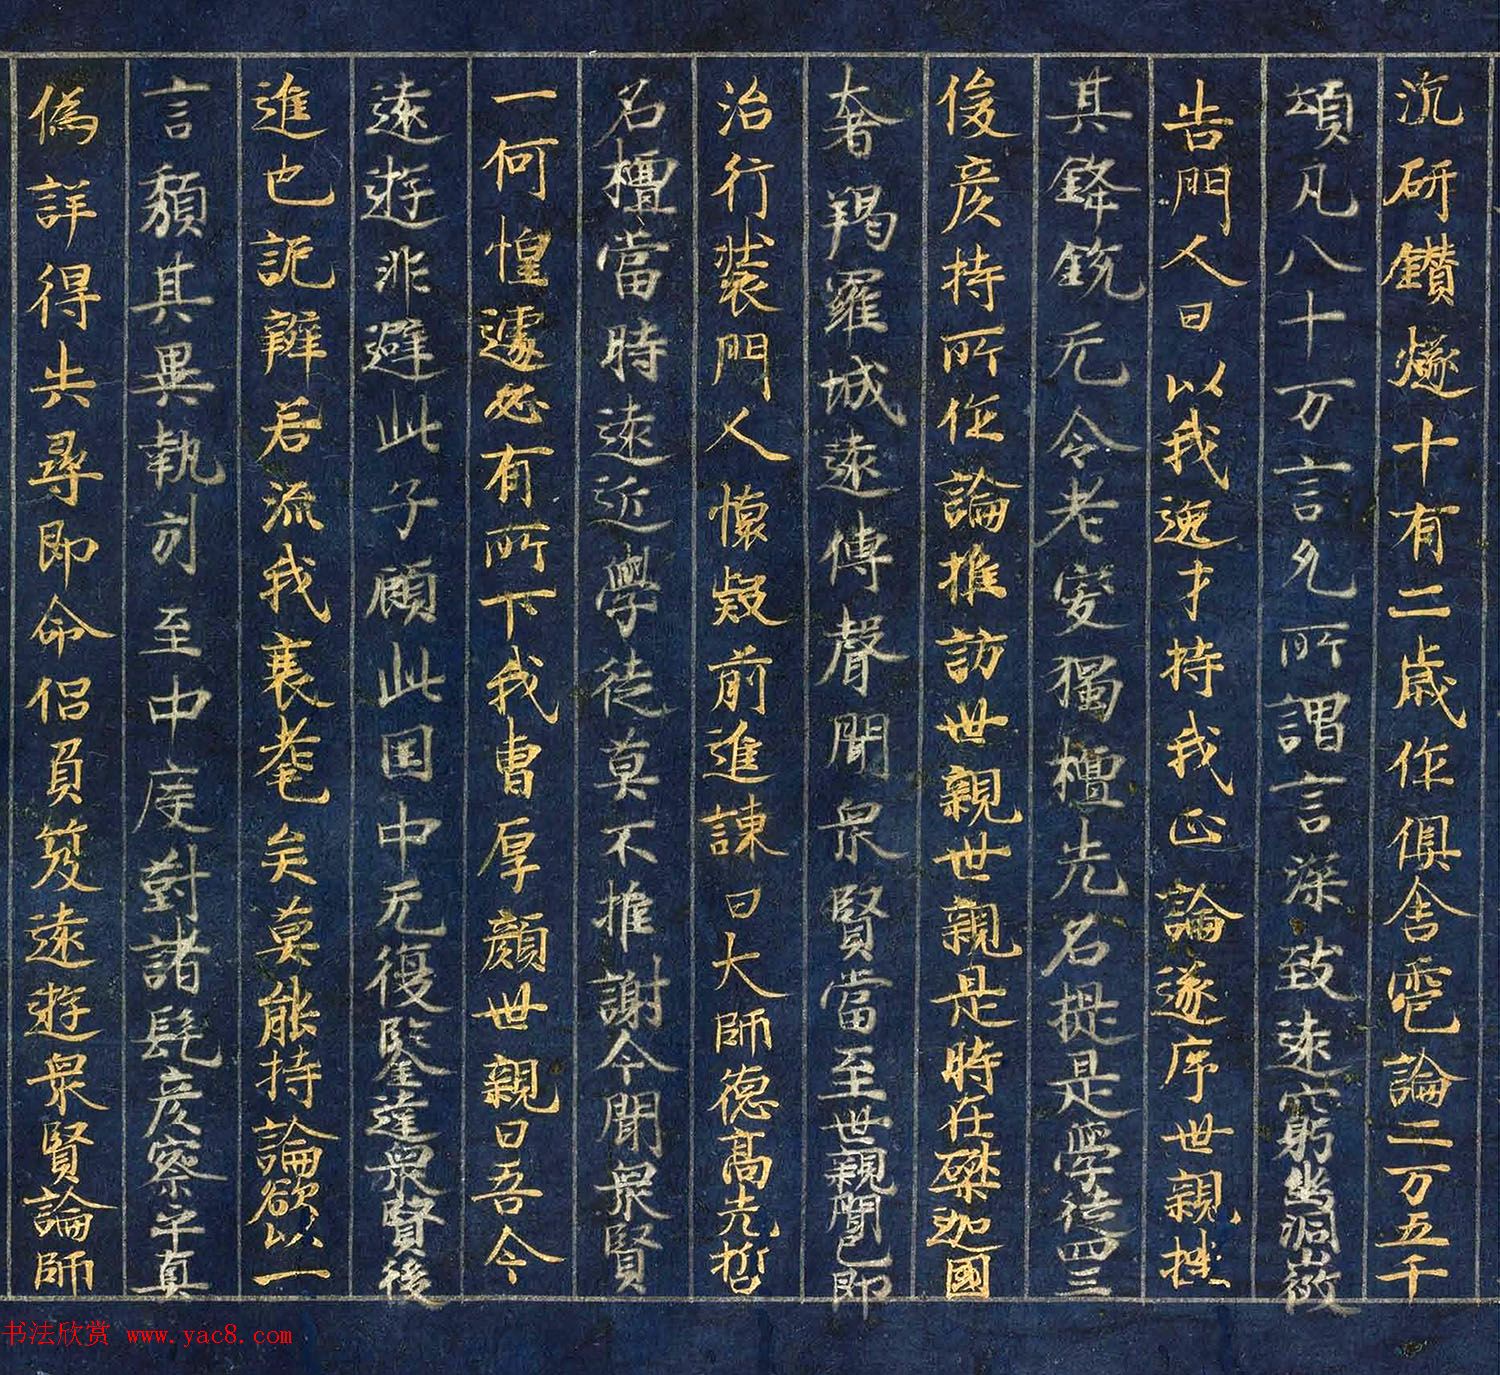 沉研鑽燧十有二歳作俱舎雹論二万五千
頌凡八十万言矣所謂言深致遠窮幽洞微
告門人曰以我逸才持我正論遂序世親挫
其鋒鋭无令老叟獨檀先名於是學徒四三
俊彦持所作論推訪世親世親是時在磔迦國
奢羯羅城遠傳聲聞衆賢當至世親聞已即
治行裝門人懷疑前進諫曰大師德髙先哲
名檀當時遠近學徒莫不推謝今聞衆賢
一何惶遽必有所下我曹厚顔世親曰吾今
遠遊非避此子顧此国中无復鑒達衆賢後
進也詭辯若流我衰耄矣莫能持論欲以一
言頽其異執引至中度對諸髦彦察乎真
偽詳得失尋即命侶負笈遠遊衆賢論師
书法欣赏 www.yac8.com